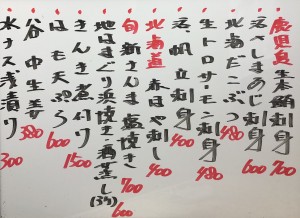 鹿児島 生本鮪刺身 700
活〆しまあじ刺身 600
北海だこぶつ 480
生トロサーモン刺身 480
活〆帆立刺身 400
北海道 春ほや刺し 400
旬 新さんま塩焼き 700
地はまぐり浜焼き・酒蒸し(3ヶ) 600
きんき煮付け 1500
はも天ぷら 600
谷中生姜 380
水ナス浅漬り 300